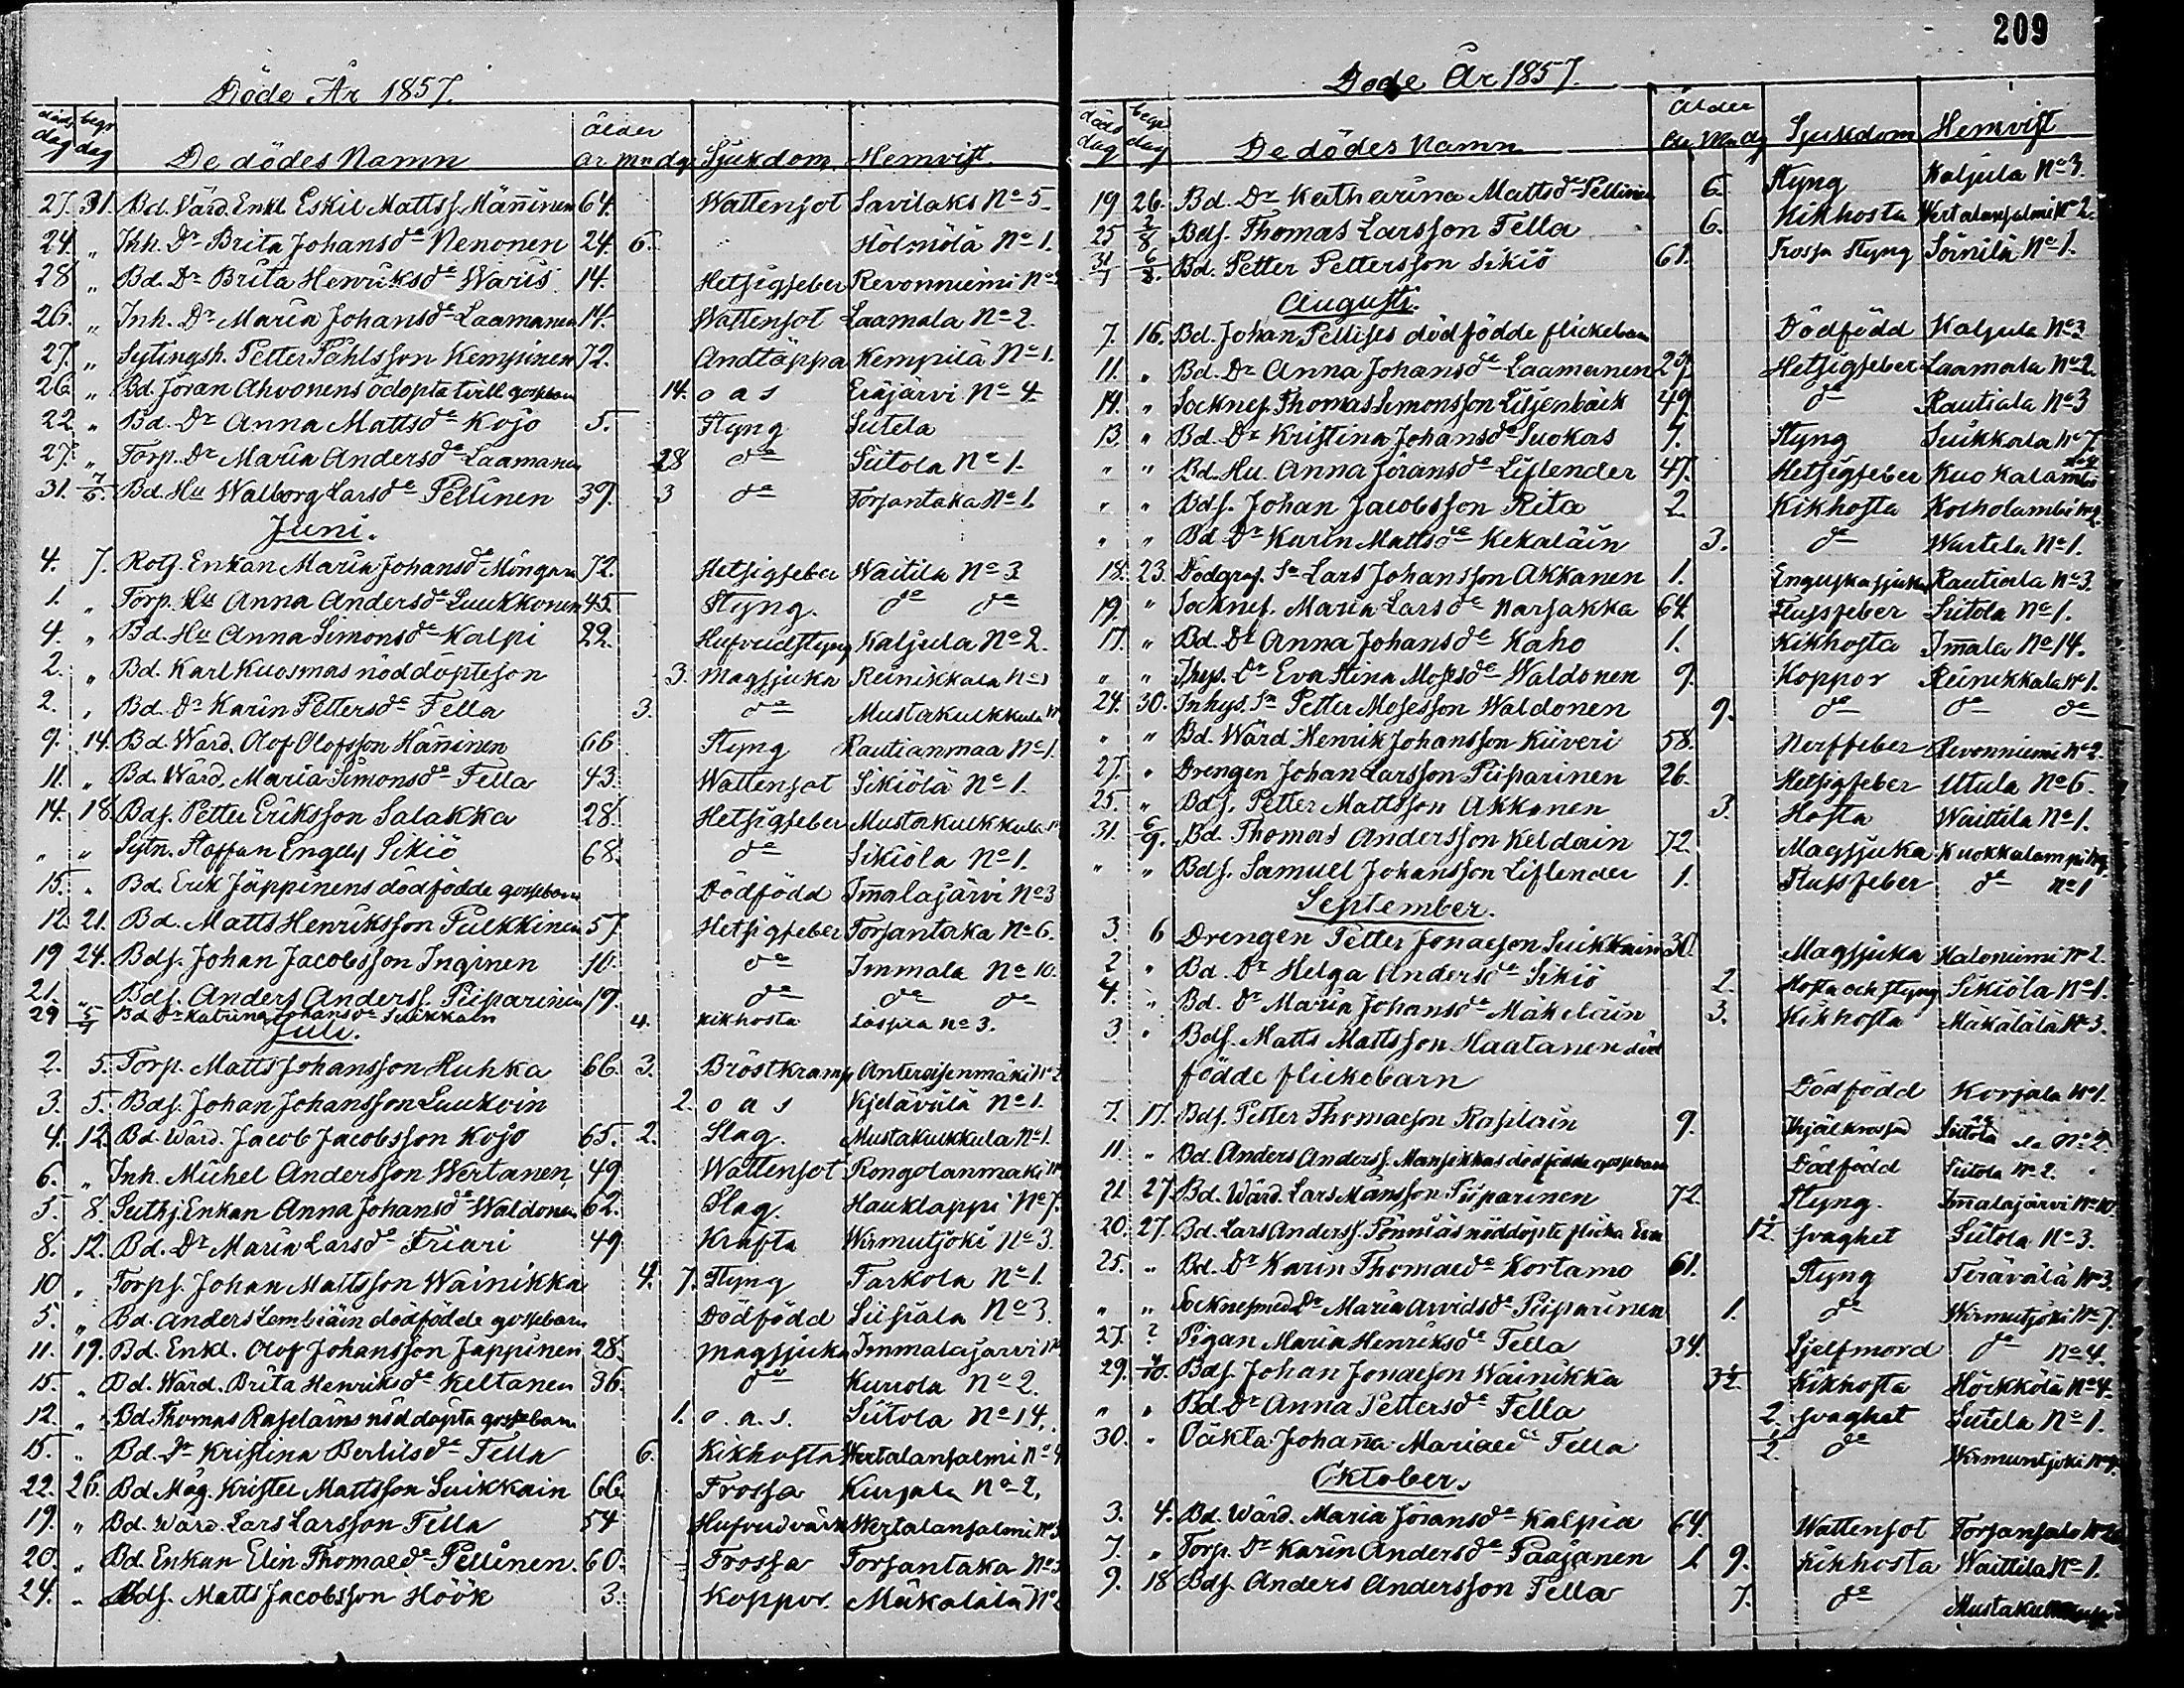 209
Döde År 1857.
döds dag begr dag De dödes Namn ålder år mn dgr Sjukdom Hemvist
27. 31. Bd. Värd. Enkl. Eskil Mattsf. Männinen 64. Wattensot Savilaks No 5
24. " Inh. Dr Brita Johansde Nenonen 24. 6. " Hölmölä No 1.
28 " Bd. Dr Brita Henriksde Waris 14. Hetsigfeber Revonniemi No
26. " Inh. Dr Maria Johansde Laamanen 14. Wattensot Laamala No 2.
27. " Sytingsh. Petter Påhlsson Kempinen 72. Andtäppa Kempilä No 1.
26 " Bd. Jöran Ahvonens odöpta tvill gossebarn 14. o a s Eräjärvi No 4.
22 " Bd. Dr Anna Mattsde Kojo 5. Styng Sutela
27. " Torp. Dr Maria Andersde Laamanen 28 de Siitola No 1.
31. 7/6. Bd. Hu Walborg Larsde Pellinen 39. 3 de Torsantaka No 1.
Juni.
4. 7. Rotf. Enkan Maria Johansde Möngar 72. Hetsigfeber Waitila No 3
1. " Torp. Hu Anna Andersde Luukkonen 45 Styng. de de
4. " Bd. Hu Anna Simonsde Kalpi 22. Hufvudstyng Kaljula No 2.
2. " Bd. Karl Kuosmas nöddöpte son 3. Magsjuka Reinikkala No 1
2. " Bd. Dr Karin Pettersde Tella 3. de Mustakulkkula No
9. 14. Bd. Wärd. Olof Olofsson Hänninen 66 Styng Rautianmaa No 1.
11. " Bd. Wärd. Maria Simonsde Tella 43. Wattensot Sikiölä No 1.
14. 18. Bds. Petter Eriksson Salakka 28. Hetsigfeber Mustakulkkula
" " Sytn. Staffan Engelsf Sikiö 68. de Sikiöla No 1.
15. " Bd. Erik Jäppinens dödfödde gossebarn Dödfödd Immalajärvi No 3
12. 21. Bd. Matts Henriksson Pulkkinen 57 Hetsigfeber Torsantaka No 6.
19 24. Bds. Johan Jacobsson Inginen 10. de Immala No 10.
21. " Bds. Anders Andersf. Piiparinen 19. de de de
29 5/7 Bd Dr Katrina Johansde Suikkain 4. kikhosta Laspila no 3.
Juli.
2. 5. Torp. Matts Johansson Huhka 66. 3. Bröstkramp Anteroisenmäki No 2
3. 5. Bds. Johan Johansson Luukoin 2. o a s Kjelävälä No 1.
4. 12. Bd. Wärd. Jacob Jacobsson Kojo 65. 2. Slag. Mustakulkkula No 1.
6. " Inh. Michel Andersson Wertanen 49. Wattensot Rongolanmäki No
5. 8. Enkan Anna Johansde Waldonen 62. Slag. Hauklappi No 7.
8. 12. Bd. Dr Maria Larsde Friari 49 Kräfta Wirmutjoki No 3.
10 " Torps. Johan Mattsson Wainikka 4. 7. Styng Tarkola No 1.
5. " Bd. Anders Lembiäin dödfödde gossebarn Dödfödd Siisiälä No 3.
11. 19. Bd. Enkl. Olof Johansson Jäppinen 28. Magsjuka Immalajärvi No
15. " Bd. Wärd. Brita Henriksde Keltanen 36. de Kurvola No 2.
12. " Bd. Thomas Rapelains nöddöpta gossebarn 1. o. a. s. Siitola No 14.
15. " Bd. Dr Kristina Bertilsde Tella 6. Kikhosta Wertalansalmi No 4
22. 26. Bd. Måg. Krister Mattsson Suikkain 66. Frossa Kurjala No 2.
19. " Bd. Wärd. Lars Larsson Tella 54 Hufvudvärk Wertalansalmi No
20. " Bd Enkan Elin Thomasde Pellinen. 60. Frossa Torsantaka No
24. " Bds. Matts Jacobsson Höök 3. Koppor. Mäkälälä No
Döde År 1857.
döds dag begr dag De dödes Namn Ålder År Mn dg Sjukdom Hemvist
19 26. Bd. Dr Katharina Mattsde Pellinen 6. Styng Kaljula No 3.
25 2/8 Bds. Thomas Larsson Tella 6. Kikhosta Wertalansalmi No 2.
31/7 6/8. Bd. Petter Pettersson Sikiö 61. Frossa Styng Sörnilä No 1.
Augusti.
7. 16. Bd. Johan Pellises dödfödde flickebarn Dödfödd Kaljula No 3
11. " Bd. Dr Anna Johansde Laamanen 29. Hetsigfeber Laamala No 2.
14. " Socknef. Thomas Simonsson Liljenbäck 49. de Rautiala No 3
13. " Bd. Dr Kristina Johansde Suokas 7. Styng Suikkala No 7.
" " Bd. Hu. Anna Jöransde Liflender 47. Hetsigfeber Kuokalambi
" " Bds. Johan Jacobsson Rita 2. Kikhosta Korholambi No 9.
" " Bd. Dr Karin Mattsde Kekäläin 3. de Wartela No 1.
18. 23. Dödgraf. Sn Lars Johansson Akkanen 1. Engelska sjukan Rautiala No 3.
19. " Socknef. Maria Larsde Narsakka 64. Flussfeber Siitola No 1.
17. " Bd. Dr Anna Johansde Kaho 1. Kikhosta Immala No 14.
" " Inhys. Dr Eva Stina Mosesde Waldonen 9. Koppor Reinikkala No 1.
24. 30. Inhys. Sn Petter Mosesson Waldonen 9. de de de
" " Bd. Wärd Henrik Johansson Kiiveri 58. Nerffeber Revonniemi No 2.
27. " Drengen Johan Larsson Piiparinen 26. Hetsigfeber Utula No 6.
25. " Bds. Petter Mattsson Akkanen 3. Hosta Waittila No 1.
31. 6/9. Bd. Thomas Andersson Keldain 72. Magsjuka Kuokkalampi No 9.
" " Bds. Samuel Johansson Liflender 1. Flussfeber de No 1
September.
3. 6 Drengen Petter Jonasson Suikkain 30. Magsjuka Haloniemi No 2.
2 " Bd. Dr Helga Andersde Sikiö 2. Hosta och styng Sikiöla No 1.
4. " Bd. Dr Maria Johansde Mäkeläin 3. Kikhosta Mäkälälä No 3.
3. " Bds. Matts Mattsson Haatanen död
födde flickobarn Dödfödd Korjala No 1.
7. 17. Bds. Petter Thomasson Raslain 9. Siitola No 2.
11. " Bd. Anders Andersf. Mansikkas dödfödde gossebarn Dödfödd Siitola No 2.
21 27. Bd. Wärd. Lars Månsson Piiparinen 72. Styng. Immalajärvi No 10.
20. 27. Bd. Lars Andersf. Pönniäs nöddöpte flicka Eva 1/2. Svaghet Siitola No 3.
25. " Bd. Dr Karin Thomasde Kortamo 61. Styng Terävälä No 3.
" " Socknesmed Dr Maria Arvidsde Piiparinen 1. de Wirmutjoki No 7.
27. ? Pigan Maria Henriksde Tella 34. Sjelfmord de No 4.
29. 4/10. Bds. Johan Jonasson Wainikka 3 1/2. Kikhosta Hörkkölä No 4.
" " Bd. Dr Anna Pettersde Tella 2. Svaghet Sutela No 1.
30. " Oäkta Johanna Mariasde Tella 1/2. de Wirmuntjoki No
Oktober.
3. 4. Bd. Wärd. Maria Jöransde Kalpia 64. Wattensot Torsansalo No 2
7. " Torp. Dr Karin Andersde Paajanen 1 9. Kikhosta Waittila No 1.
9. 18 Bds. Anders Andersson Tella 7. de